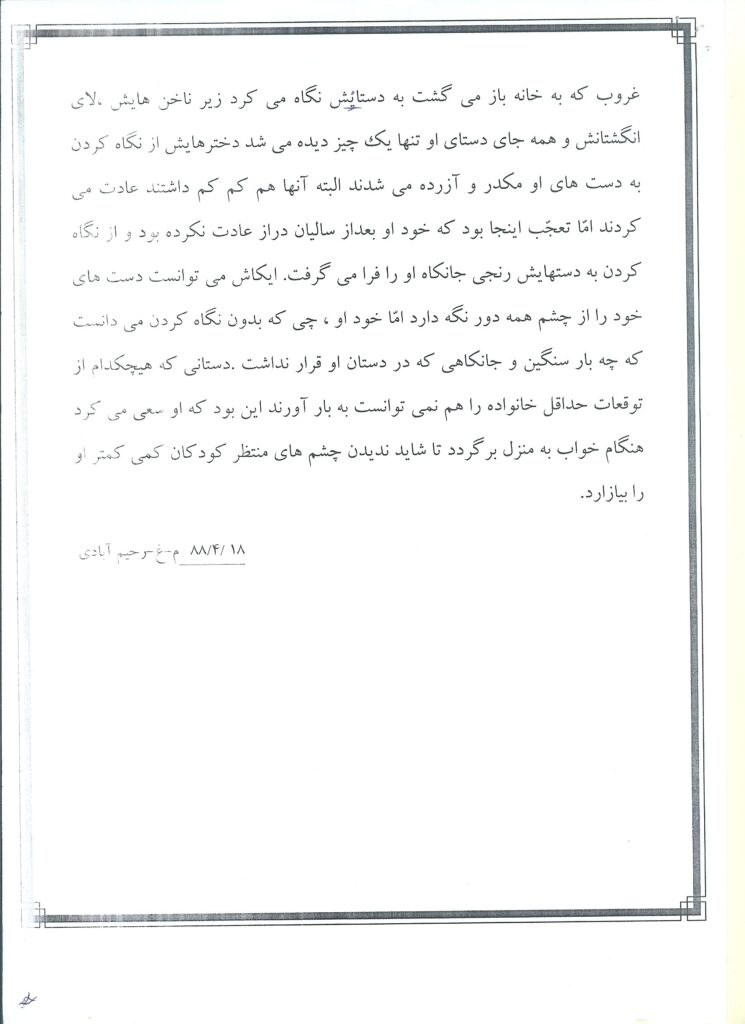 غروب که به خانه باز می گشت به دستانش نگاه می کرد زیر ناخن هایش ،لای
انگشتانش و همه جای دستای او تنها یک چیز دیده می شد دخترهایش از نگاه کردن
به دست های او مکدر و آزرده می شدند البته آنها هم کم کم داشتند عادت می
کردند امّا تعجّب اینجا بود که خود او بعداز سالیان دراز عادت نکرده بود و از نگاه
کردن به دستهایش رنجی جانکاه او را فرا می گرفت. ایکاش می توانست دست های
خود را از چشم همه دور نگه دارد امّا خود او ، چی که بدون نگاه کردن می دانست
که چه بار سنگین و جانکاهی که در دستان او قرار نداشت .دستانی که هیچکدام از
توقعات حداقل خانواده را هم نمی توانست به بار آورند این بود که او سعی می کرد
هنگام خواب به منزل برگردد تا شاید ندیدن چشم های منتظر کودکان کمی کمتر او
را بیازارد.
۸۸/۴/ ۱۸ م-غ-رحیم آبادی